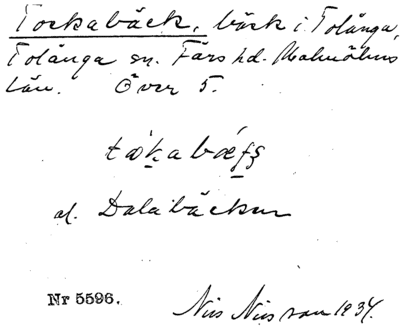 Tockabäck, bäck i Tolånga,
Tolånga sn. Färs hd. Malmöhus
Län. Över 5.
al. Dalabäcken
Nr 5596.
Nils Nilsson 1934.